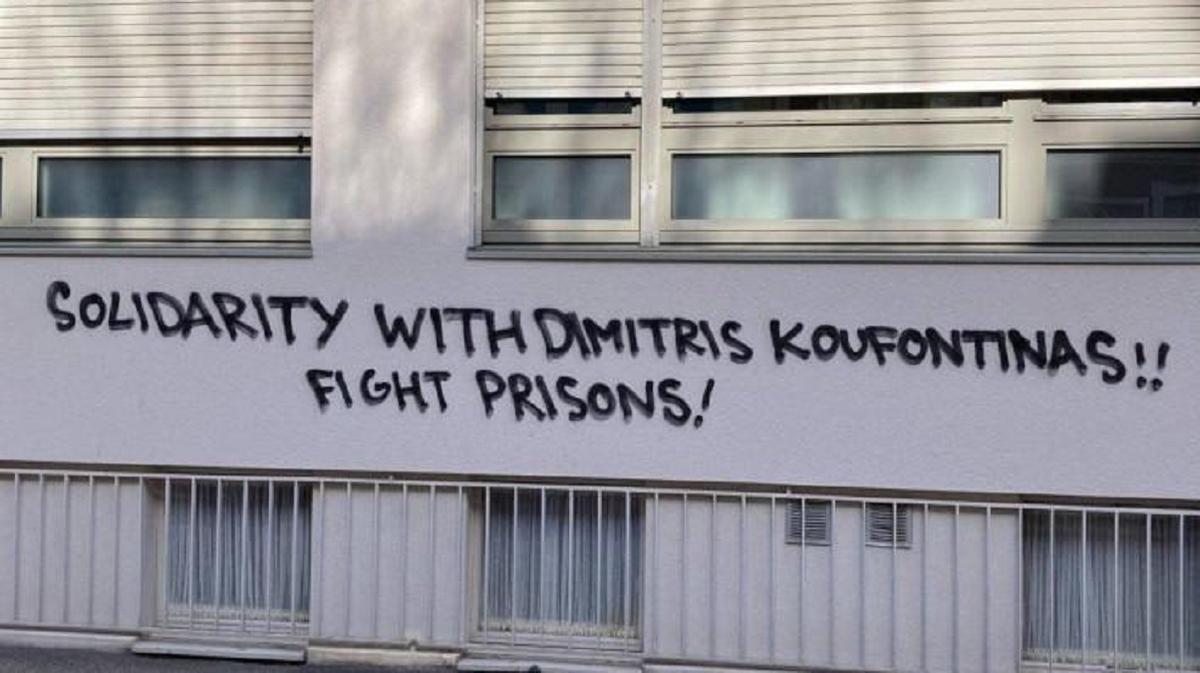 SOLIDARITY WITH DIMITRIS KOUFONTINAS!!
FIGHT PRISONS!